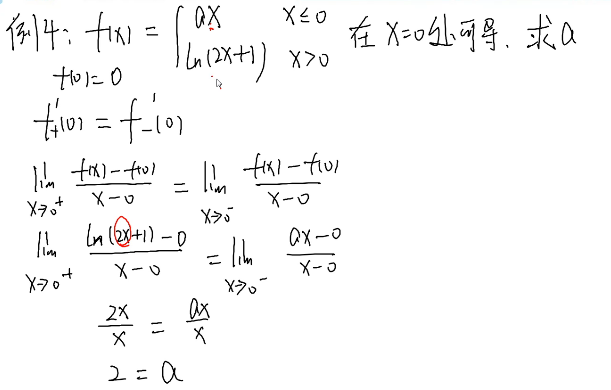 例14: f(x) = { ax x≤0 在 x=0处可导. 求a
ln(2x+1) x>0
f(0)=0
f'₊(0) = f'₋(0)
lim x→0⁺ (f(x)-f(0))/(x-0) = lim x→0⁻ (f(x)-f(0))/(x-0)
lim x→0⁺ (ln(2x+1)-0)/(x-0) = lim x→0⁻ (ax-0)/(x-0)
2x/x = ax/x
2 = a